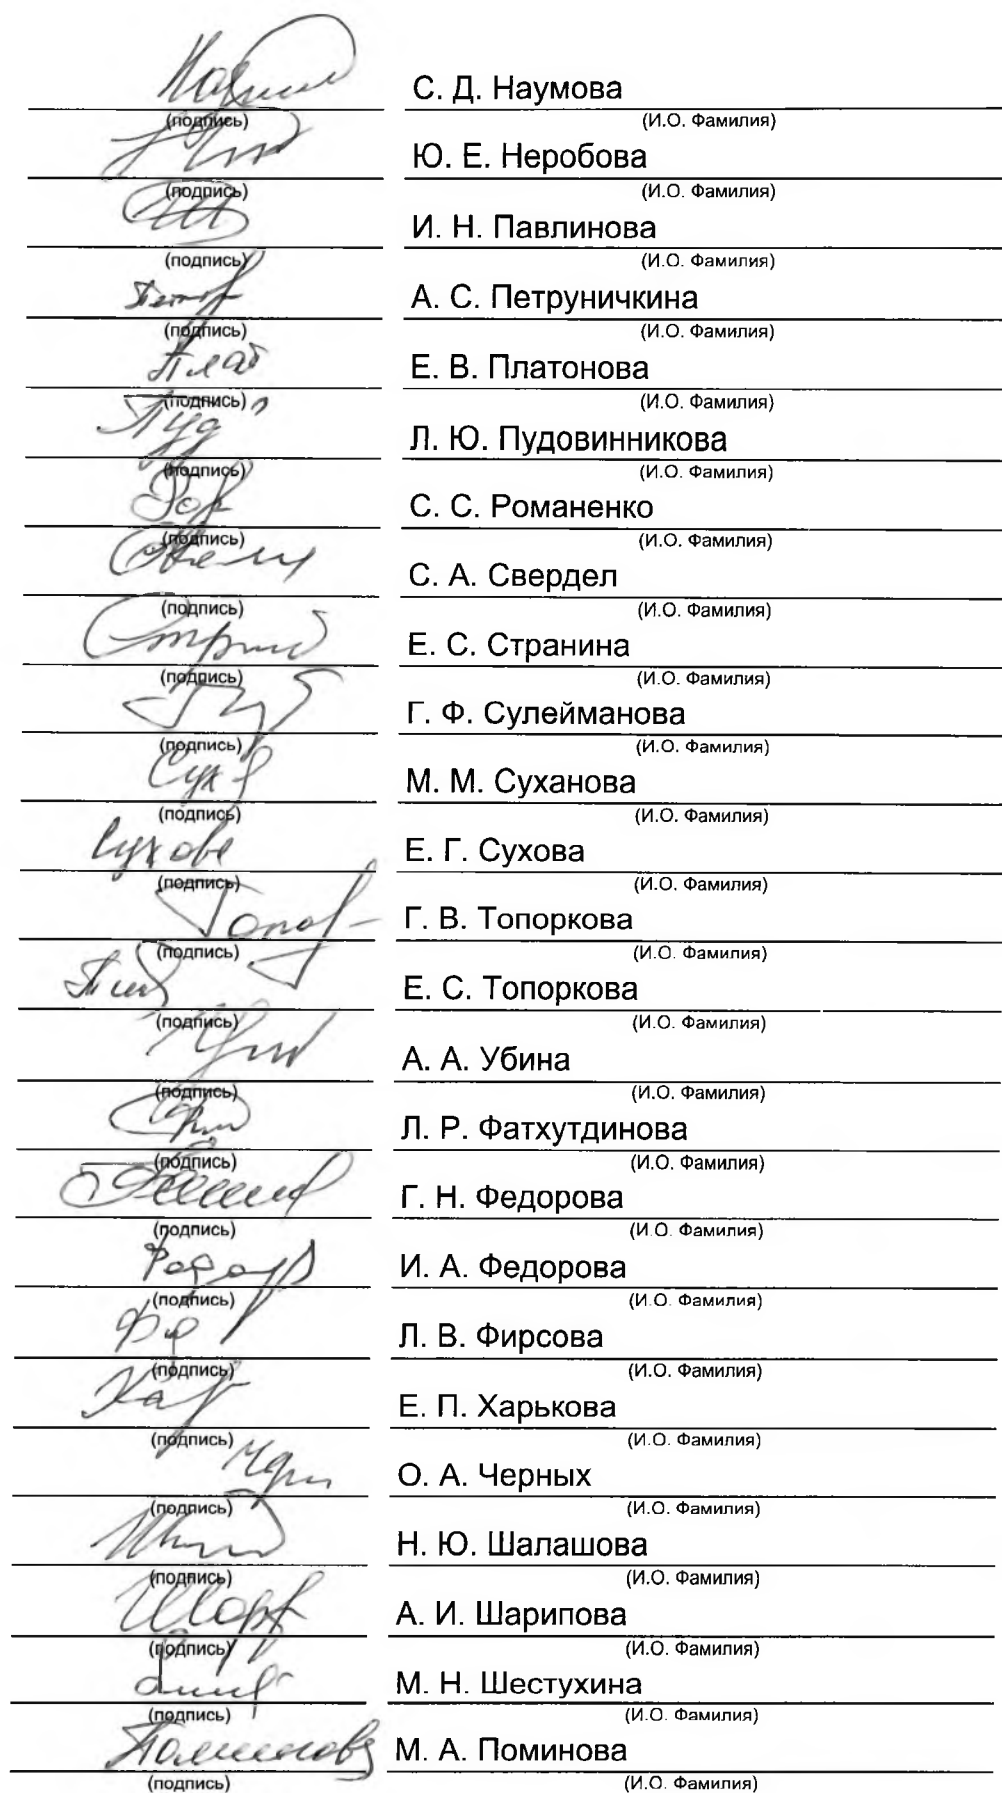 С. Д. Наумова
(подпись) (И.О. Фамилия)
Ю. Е. Неробова
(подпись) (И.О. Фамилия)
И. Н. Павлинова
(подпись) (И.О. Фамилия)
А. С. Петруничкина
(подпись) (И.О. Фамилия)
Плат Е. В. Платонова
(подпись) (И.О. Фамилия)
Пуд Л. Ю. Пудовинникова
(подпись) (И.О. Фамилия)
С. С. Романенко
(подпись) (И.О. Фамилия)
С. А. Свердел
(подпись) (И.О. Фамилия)
Е. С. Странина
(подпись) (И.О. Фамилия)
Г. Ф. Сулейманова
(подпись) (И.О. Фамилия)
Сух М. М. Суханова
(подпись) (И.О. Фамилия)
Сухова Е. Г. Сухова
(подпись) (И.О. Фамилия)
Г. В. Топоркова
(подпись) (И.О. Фамилия)
Е. С. Топоркова
(подпись) (И.О. Фамилия)
А. А. Убина
(подпись) (И.О. Фамилия)
Л. Р. Фатхутдинова
(подпись) (И.О. Фамилия)
Г. Н. Федорова
(подпись) (И.О. Фамилия)
И. А. Федорова
(подпись) (И.О. Фамилия)
Л. В. Фирсова
(подпись) (И.О. Фамилия)
Е. П. Харькова
(подпись) (И.О. Фамилия)
О. А. Черных
(подпись) (И.О. Фамилия)
Н. Ю. Шалашова
(подпись) (И.О. Фамилия)
А. И. Шарипова
(подпись) (И.О. Фамилия)
М. Н. Шестухина
(подпись) (И.О. Фамилия)
Поминова М. А. Поминова
(подпись) (И.О. Фамилия)